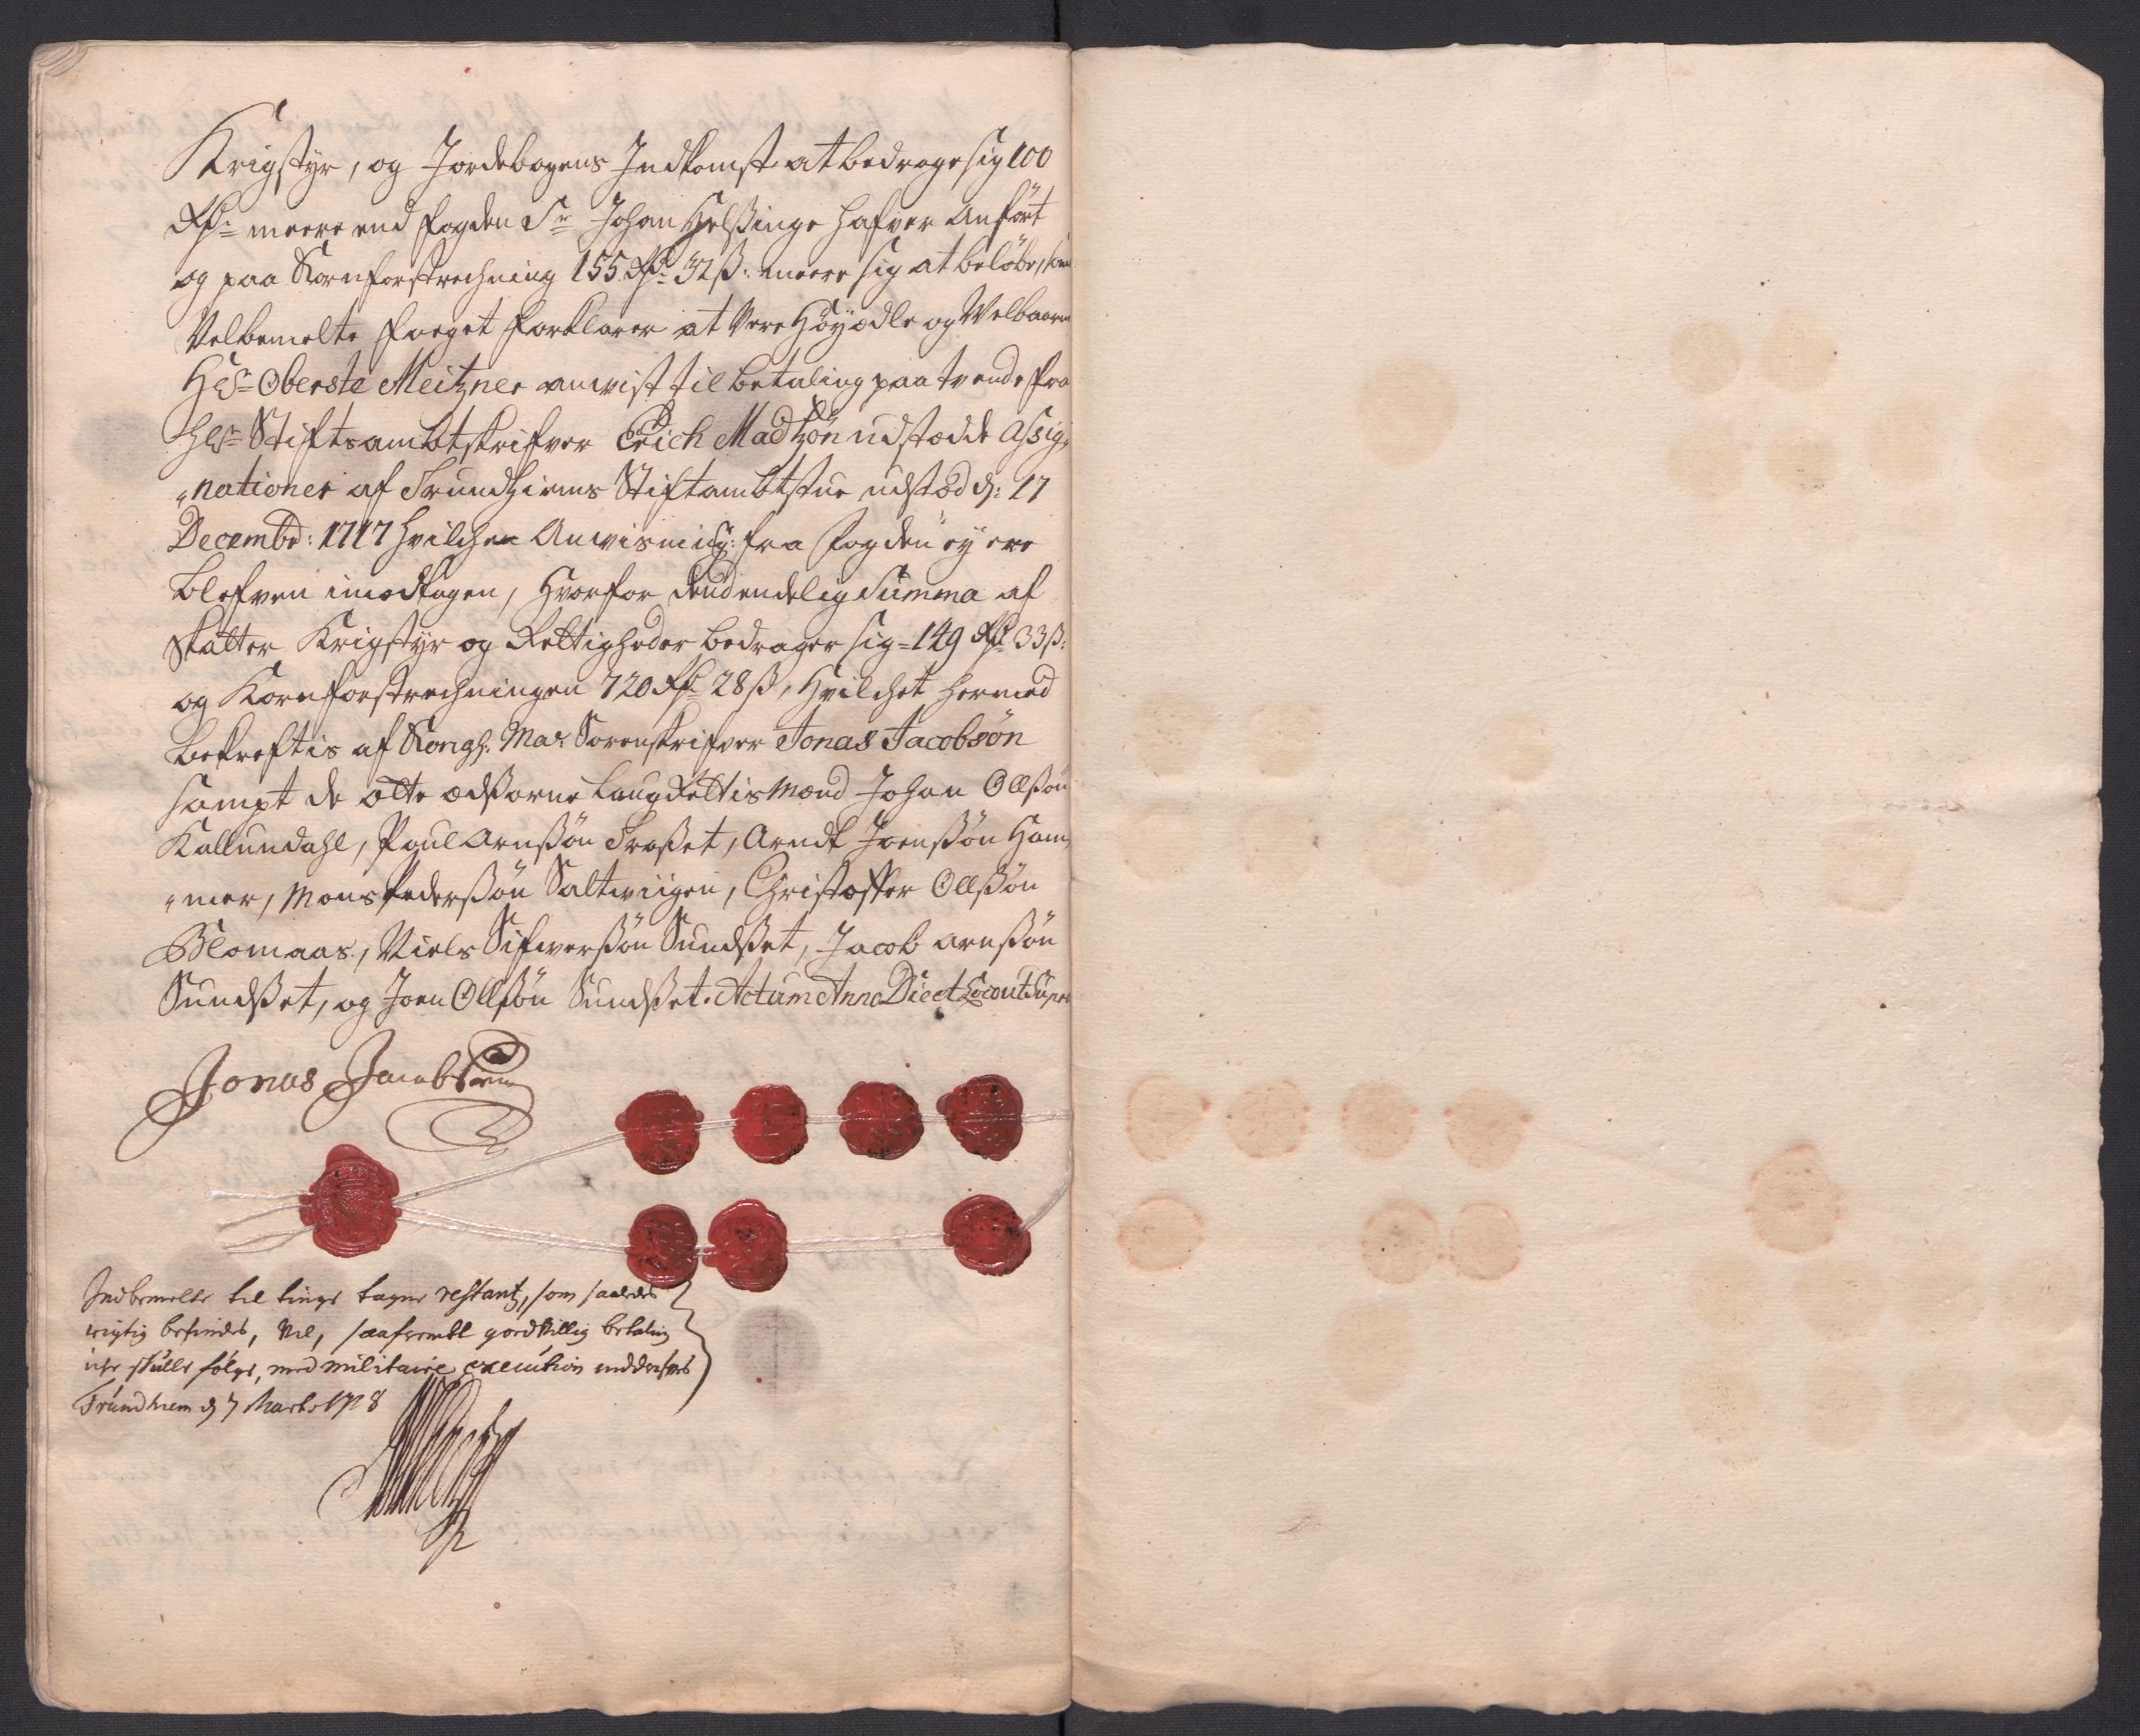 Krigstyr, og Jordebogens Indkomst at bedrage sig 100
Rd: meere end fogden Sr Johan Helssinge hafver Anfört
og paa Kornforstrechning 155 Rd 32 ß: meere sig at belöbe, som
Velbemelte foeget forklarer at Vere Höÿædle og Welbaarne
Her Oberste Meitzner anvist til betaling paa tvende fra
Her Stiftsambtskrifver Erich Madtzön udstædde Assig„
„nationer af Trundhiems Stiftambtstue udstæd d: 17
Decembr: 1717 hvilche Anvisning: fra fogden eÿ ere
blefven imodtagen, Hvorfor dend endelig Summa af
Skatter Krigstyr og Rettigheder bedrager sig = 149 Rd 33 ß:
og Kornforstrechningen 720 Rd 28 ß, Hvilchet hermed
bekreftis af Kongl: Mas Sorenskrifver Jonas Jacobsön
sampt de otte ædsorne Laugrettis Mænd Johan Ollssön
Kallundahl, Poul Arnssön Trosset, Arndt Joenssön Ham„
„mer, Mons Pederssön Saltwiigen, Christoffer Ollssön
Blomaas, Niels Sifwerssön Sundsset, Jacob Arnssön
Sundsset, og Joen Ollssön Sundsset. Actum Anno Die et Loco ut Supra
Jonas Jacobsen
Indbemelte til tinge tagne restantz, som saaledes
rigtig befindes, vil, saafremt goedvillig betaling
icke skulle følge, med militaire execution inddrifves
Trundhiem d 7 Marti 1718